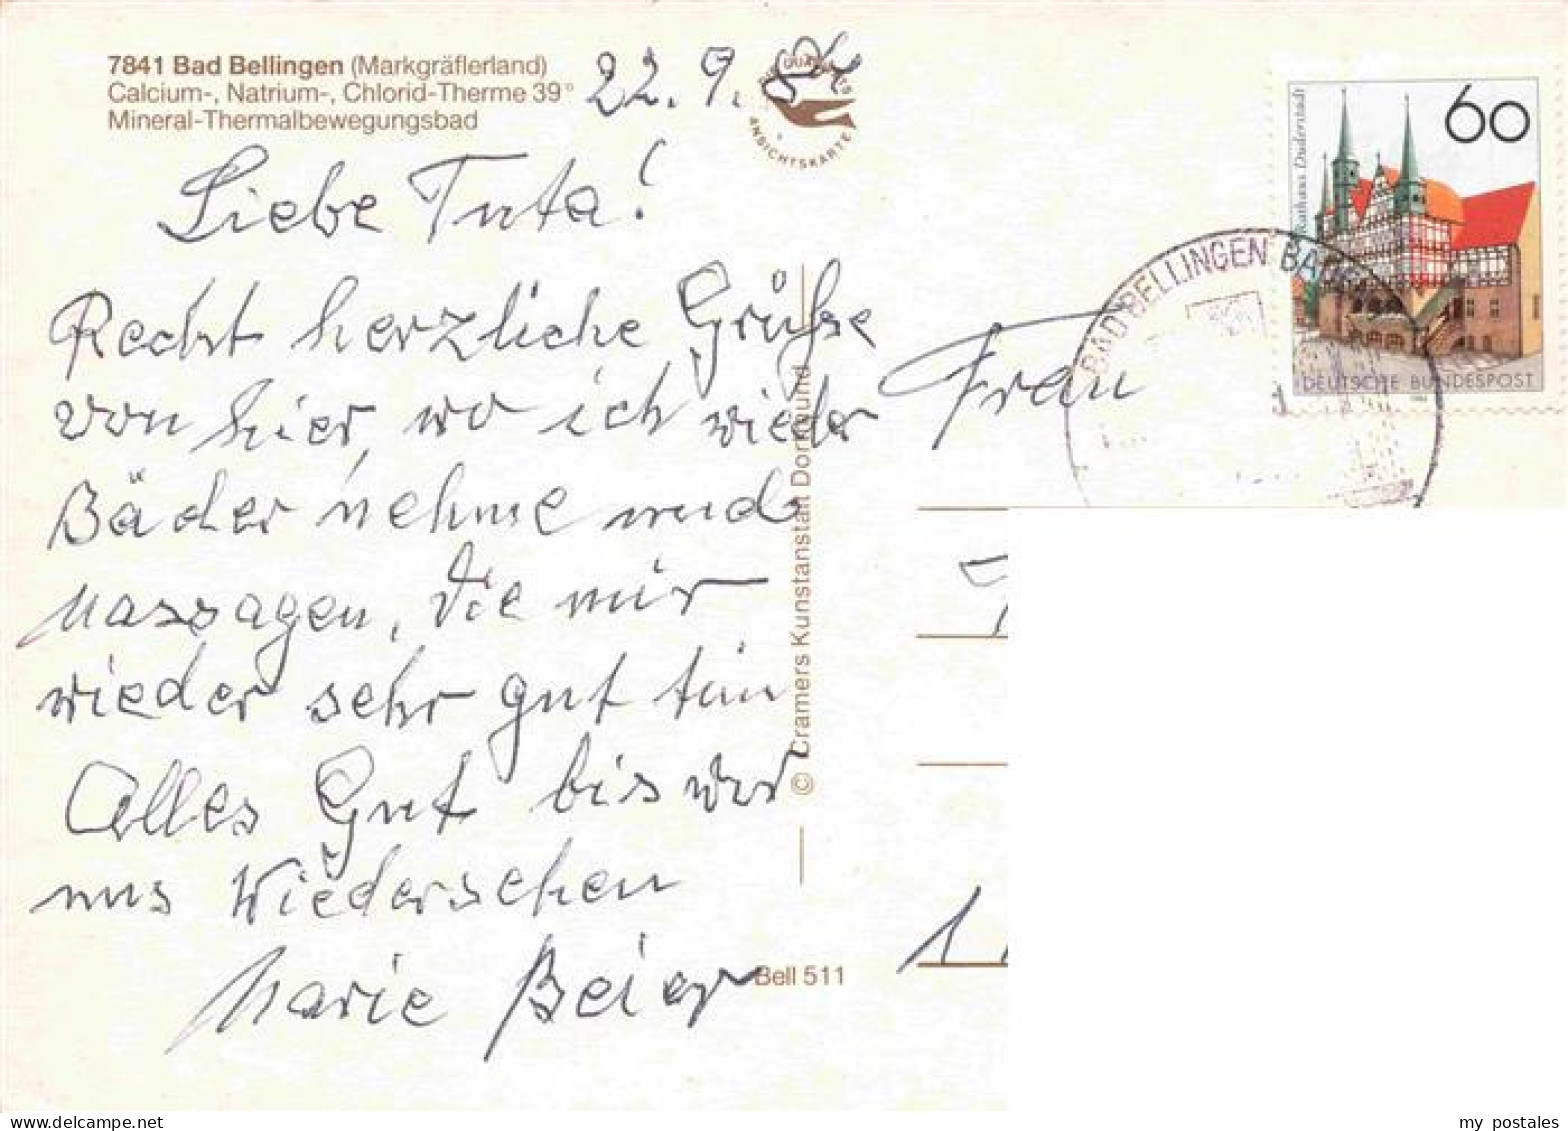 7841 Bad Bellingen (Markgräflerland)
Calcium-, Natrium-, Chlorid-Therme 39°
Mineral-Thermalbewegungsbad
22.9.84
ANSICHTSKARTE
Liebe Tuta!
Recht herzliche Grüße
von hier, wo ich wieder
Bäder nehme und
Massagen, die mir
wieder sehr gut tun
Alles Gut bis wir
uns Wiedersehen
Marie Beier
© Cramers Kunstanstalt Dortmund
Bell 511
Frau
1
60
Rathaus Duderstadt
DEUTSCHE BUNDESPOST
BAD BELLINGEN
my postales